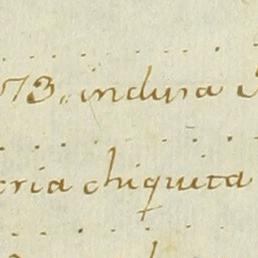 73, indusa
cria chiquita